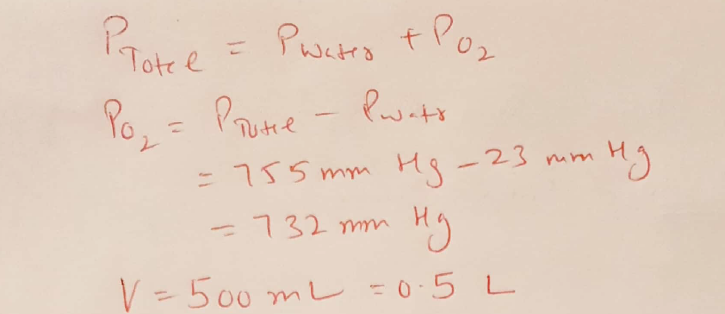 P Total = P water + P O₂
P O₂ = P Total - P water
= 755 mm Hg - 23 mm Hg
= 732 mm Hg
V = 500 mL = 0.5 L